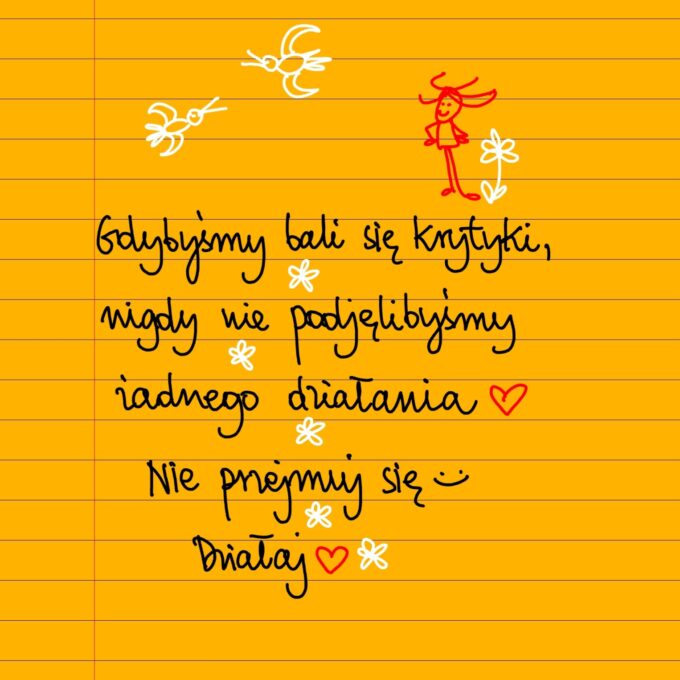 Gdybyśmy bali się krytyki,
nigdy nie podjęlibyśmy
żadnego działania
Nie przejmuj się
Działaj